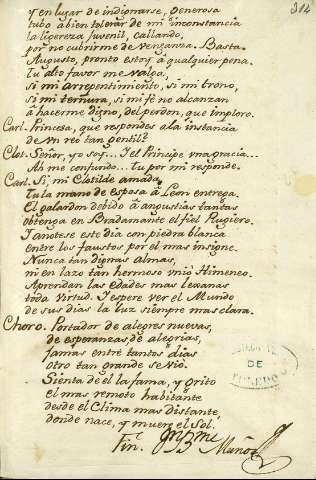 304
y en lugar de indignarse, generosa
tubo abien tolerar de mi inconstancia
la ligereza Juvenil, callando,
por no cubrirme de venganza. Basta.
Augusto, pronto estoy a qualquier pena.
Tu alto favor me valga,
si mi arrepentimiento, si mi trono,
si mi ternura, si mi fé no alcanzan
a hacerme digno, del perdon, que imploro.
Carl. Princesa, que respondes ala instancia
de vn reo tan gentil?
Clot. Señor, yo soy... I el Principe vna gracia...
Ah me confundo... Tu por mi responde.
Carl. Si, mi Clotilde amada,
Tu la mano de esposa a Leon entrega.
El galardon debido a angustias tantas
obtenga en Bradamante el fiel Rugiero.
I anotese este dia con piedra blanca
entre los faustos por el mas insigne.
Nunca tan dignas almas,
ni en lazo tan hermoso vnió Himeneo.
Aprendan las edades mas lexanas
toda Virtud. I espere ver el Mundo
de sus dias la luz siempre mas clara.
Choro. Portador de alegres nuevas,
de esperanzas, de alegrias,
Jamas entre tantos dias
otro tan grande se vió.
Sienta de él la fama, y grito
el mas remoto habitante
desde el Clima mas distante,
donde nace, y muere el Sol.
Fin.
Muñoz
DE
TOLEDO